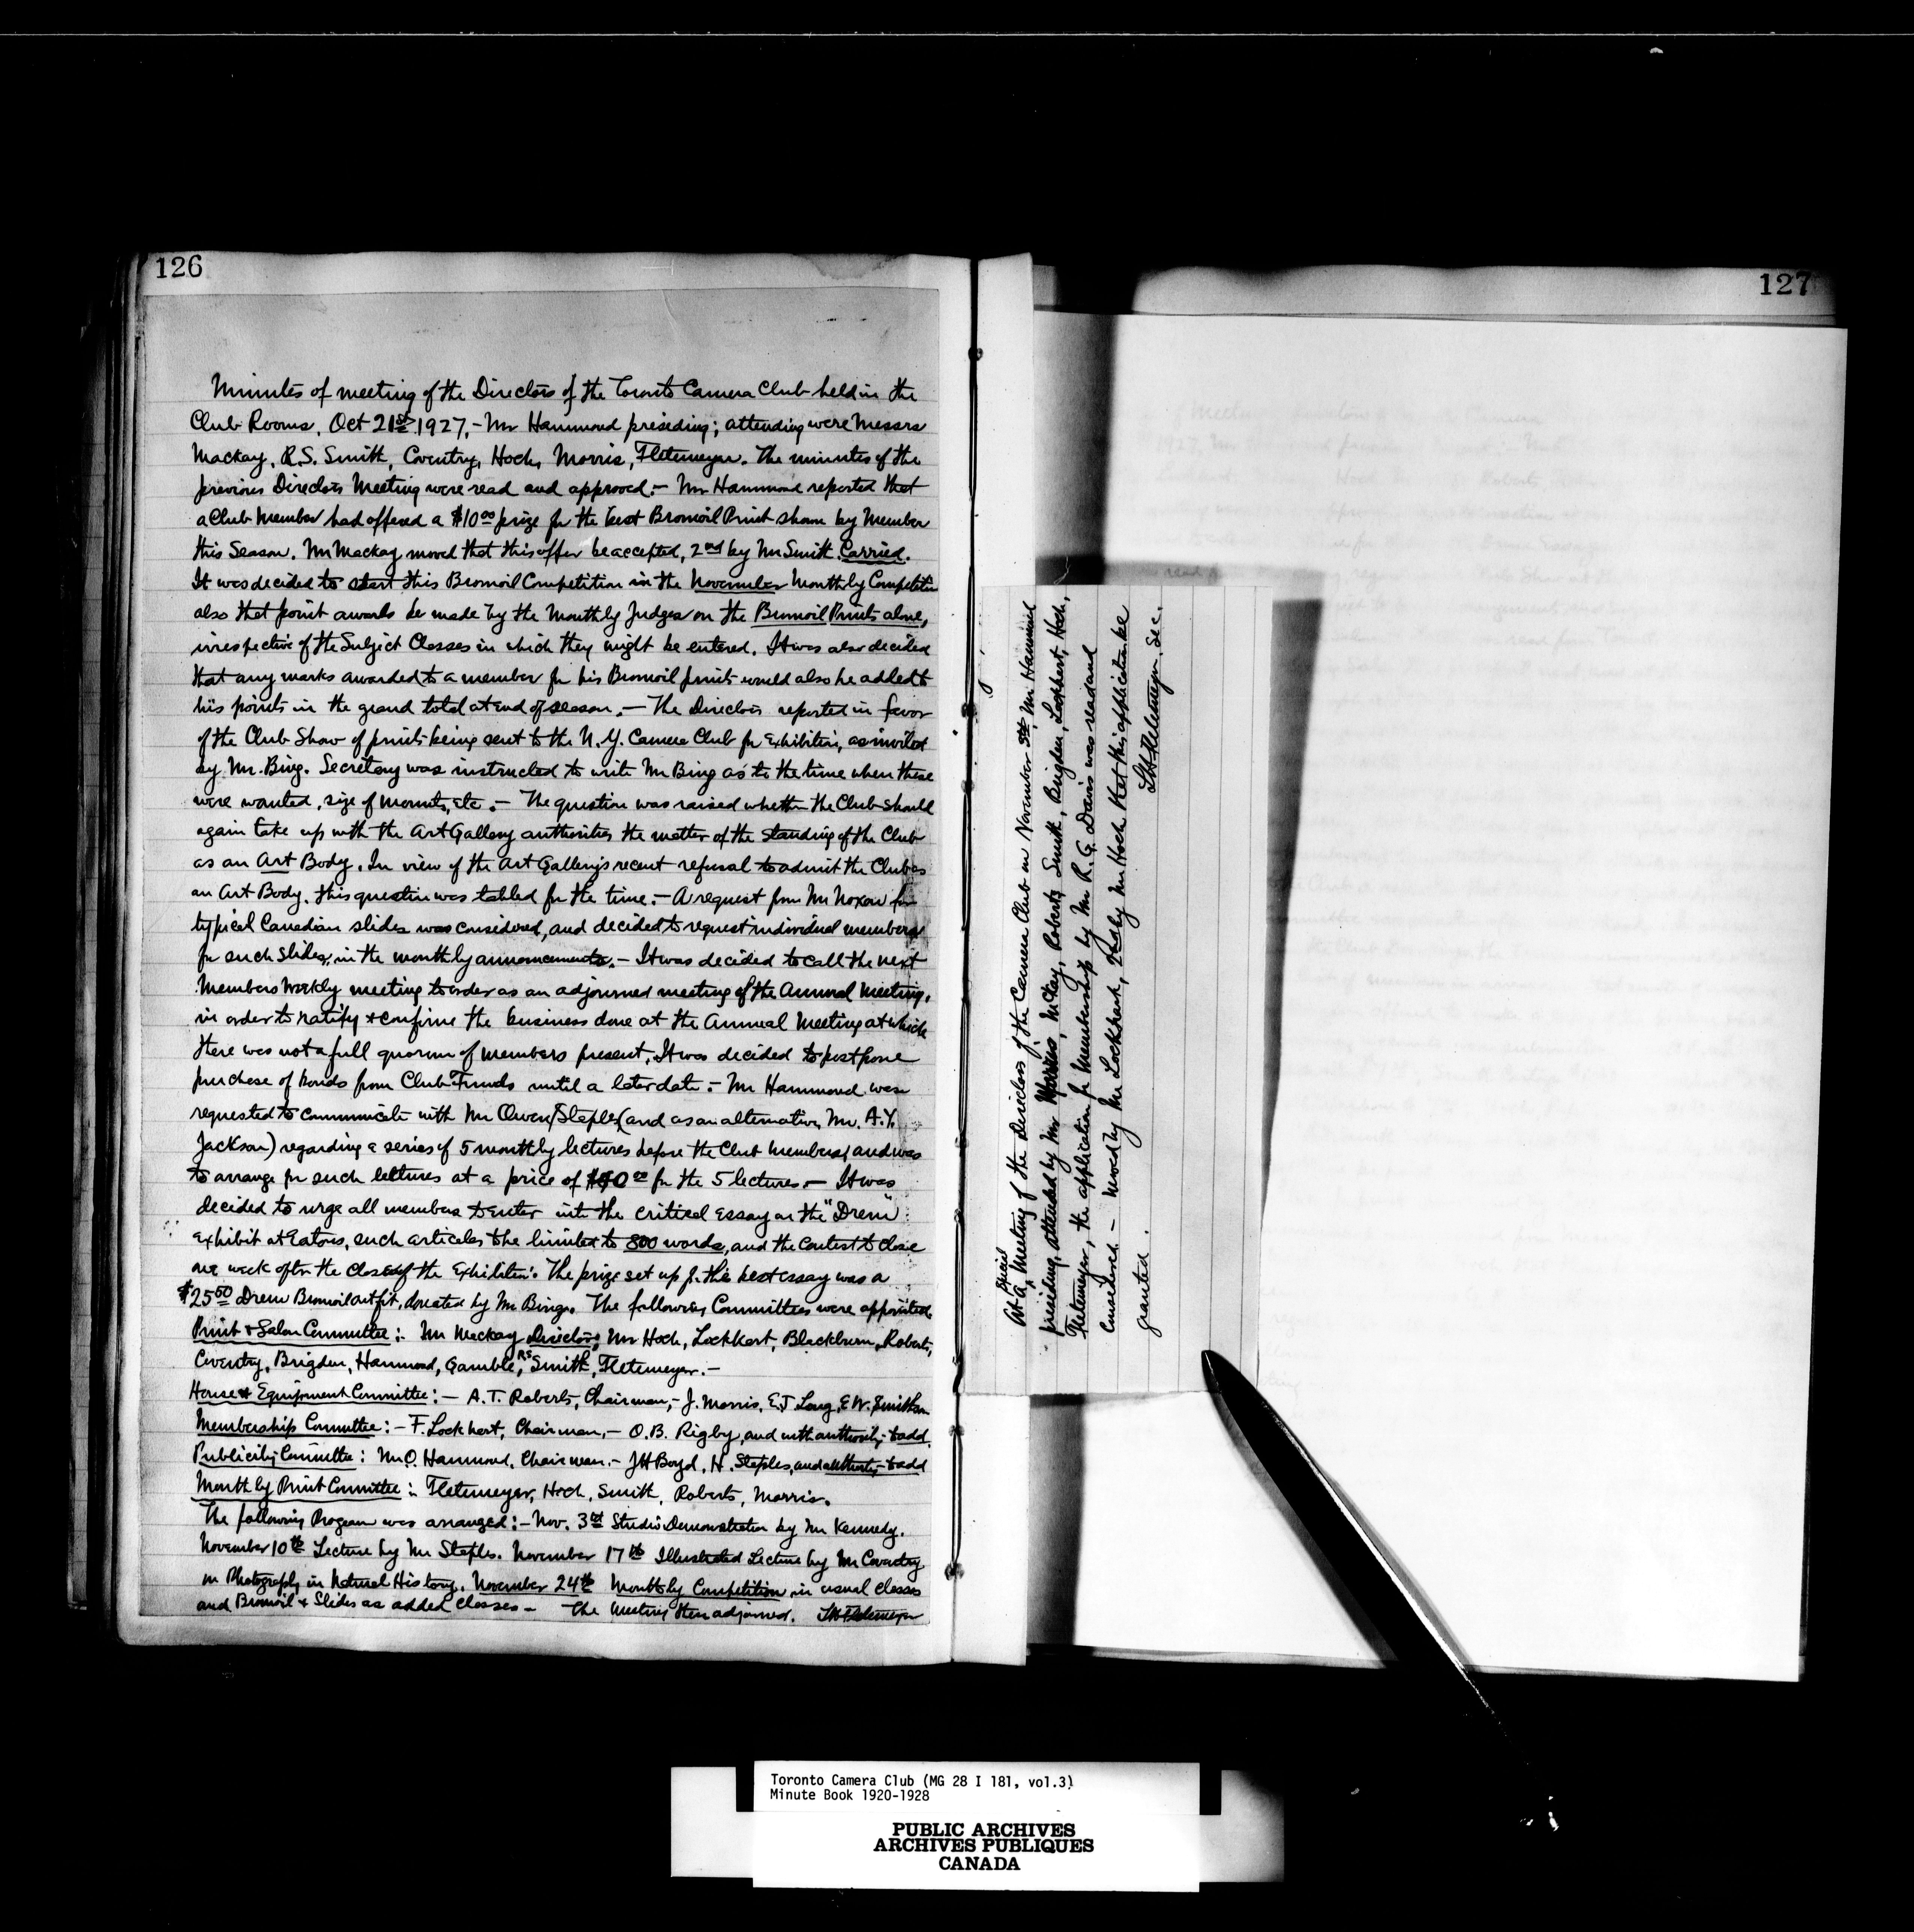 126
Minutes of meeting of the Directors of the Toronto Camera Club held in the
Club Rooms, Oct 21st 1927. - Mr Hammond presiding; attending were Messrs
Mackay, R.S. Smith, Coventry, Hoch, Morris, Fletemeyer. The minutes of the
previous Directors Meeting were read and approved. - Mr Hammond reported that
a Club Member had offered a $10.00 prize for the best Bromoil Print shown by Member
this Season. Mr Mackay moved that this offer be accepted, 2nd by Mr Smith. Carried.
It was decided to start this Bromoil Competition in the November Monthly Competition
also that point awards be made by the Monthly Judges on the Bromoil Prints alone,
irrespective of the Subject Classes in which they might be entered. It was also decided
that any marks awarded to a member for his Bromoil prints would also be added to
his points in the grand total at end of season. - The Directors reported in favor
of the Club Show of prints being sent to the N.Y. Camera Club for Exhibition, as invited
by Mr. Bing. Secretary was instructed to write Mr Bing as to the time when these
were wanted, size of mounts, etc. - The question was raised whether the Club should
again take up with the Art Gallery authorities the matter of the standing of the Club
as an Art Body. In view of the Art Gallery's recent refusal to admit the Club as
an Art Body, this question was tabled for the time. - A request from Mr Noxon for
typical Canadian slides was considered, and decided to request individual members
for such slides, in the monthly announcements. - It was decided to call the next
Members Weekly meeting to order as an adjourned meeting of the Annual Meeting,
in order to ratify & confirm the business done at the Annual Meeting at which
there was not a full quorum of members present. It was decided to postpone
purchase of bonds from Club Funds until a later date. - Mr Hammond was
requested to communicate with Mr Owen Staples (and as an alternative, Mr. A.Y.
Jackson) regarding a series of 5 monthly lectures before the Club members, and was
to arrange for such lectures at a price of 00 for the 5 lectures. - It was
decided to urge all members to enter into the critical essay on the "Drem"
exhibit at Eatons, such articles to be limited to 800 words, and the Contest to close
one week after the close of the Exhibition. The prize set up for the best essay was a
$25.50 Drem Bromoil outfit, donated by Mr Bing. The following Committees were appointed
Print & Salon Committee: - Mr Mackay Director, Mr Hoch, Lockhart, Blackburn, Roberts,
Coventry, Brigden, Hammond, Gamble, RS Smith, Fletemeyer. -
House & Equipment Committee: - A.T. Roberts, Chairman, - J. Morris, E.J Long, E W. Smithson
Membership Committee: - F. Lockhart, Chairman, - O.B. Rigby, and with authority to add.
Publicity Committee: M.O. Hammond, Chairman. - JH Boyd, H. Staples, and authority to add
Monthly Print Committee: - Fletemeyer, Hoch, Smith, Roberts, Morris.
The following Program was arranged: - Nov. 3rd Studio Demonstration by Mr Kennedy.
November 10th Lecture by Mr Staples. November 17th Illustrated Lecture by Mr Coventry
on Photography in Natural History. November 24th Monthly Competition in usual classes
and Bromoil & Slides as added classes - The Meeting then adjourned. Fletemeyer
127
At a special Meeting of the Directors of the Camera Club on November Mr Hammond
presiding, attended by Mr Morris, McKay, Roberts, Smith, Brigden, Lockhart, Hoch,
Fletemeyer, the application for Membership by Mr R.G. Davis was read and
considered - Moved by Mr Lockhart, 2nd by Mr Hoch that this application be
granted. Fletemeyer. Sec.
Toronto Camera Club (MG 28 I 181, vol.3)
Minute Book 1920-1928
PUBLIC ARCHIVES
ARCHIVES PUBLIQUES
CANADA